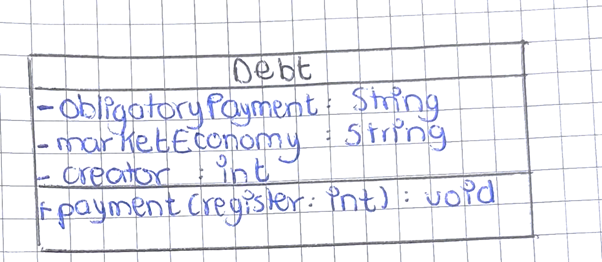 Debt
- obligatoryPayment: String
- marketEconomy : String
- creator : int
+ payment(register: int) : void